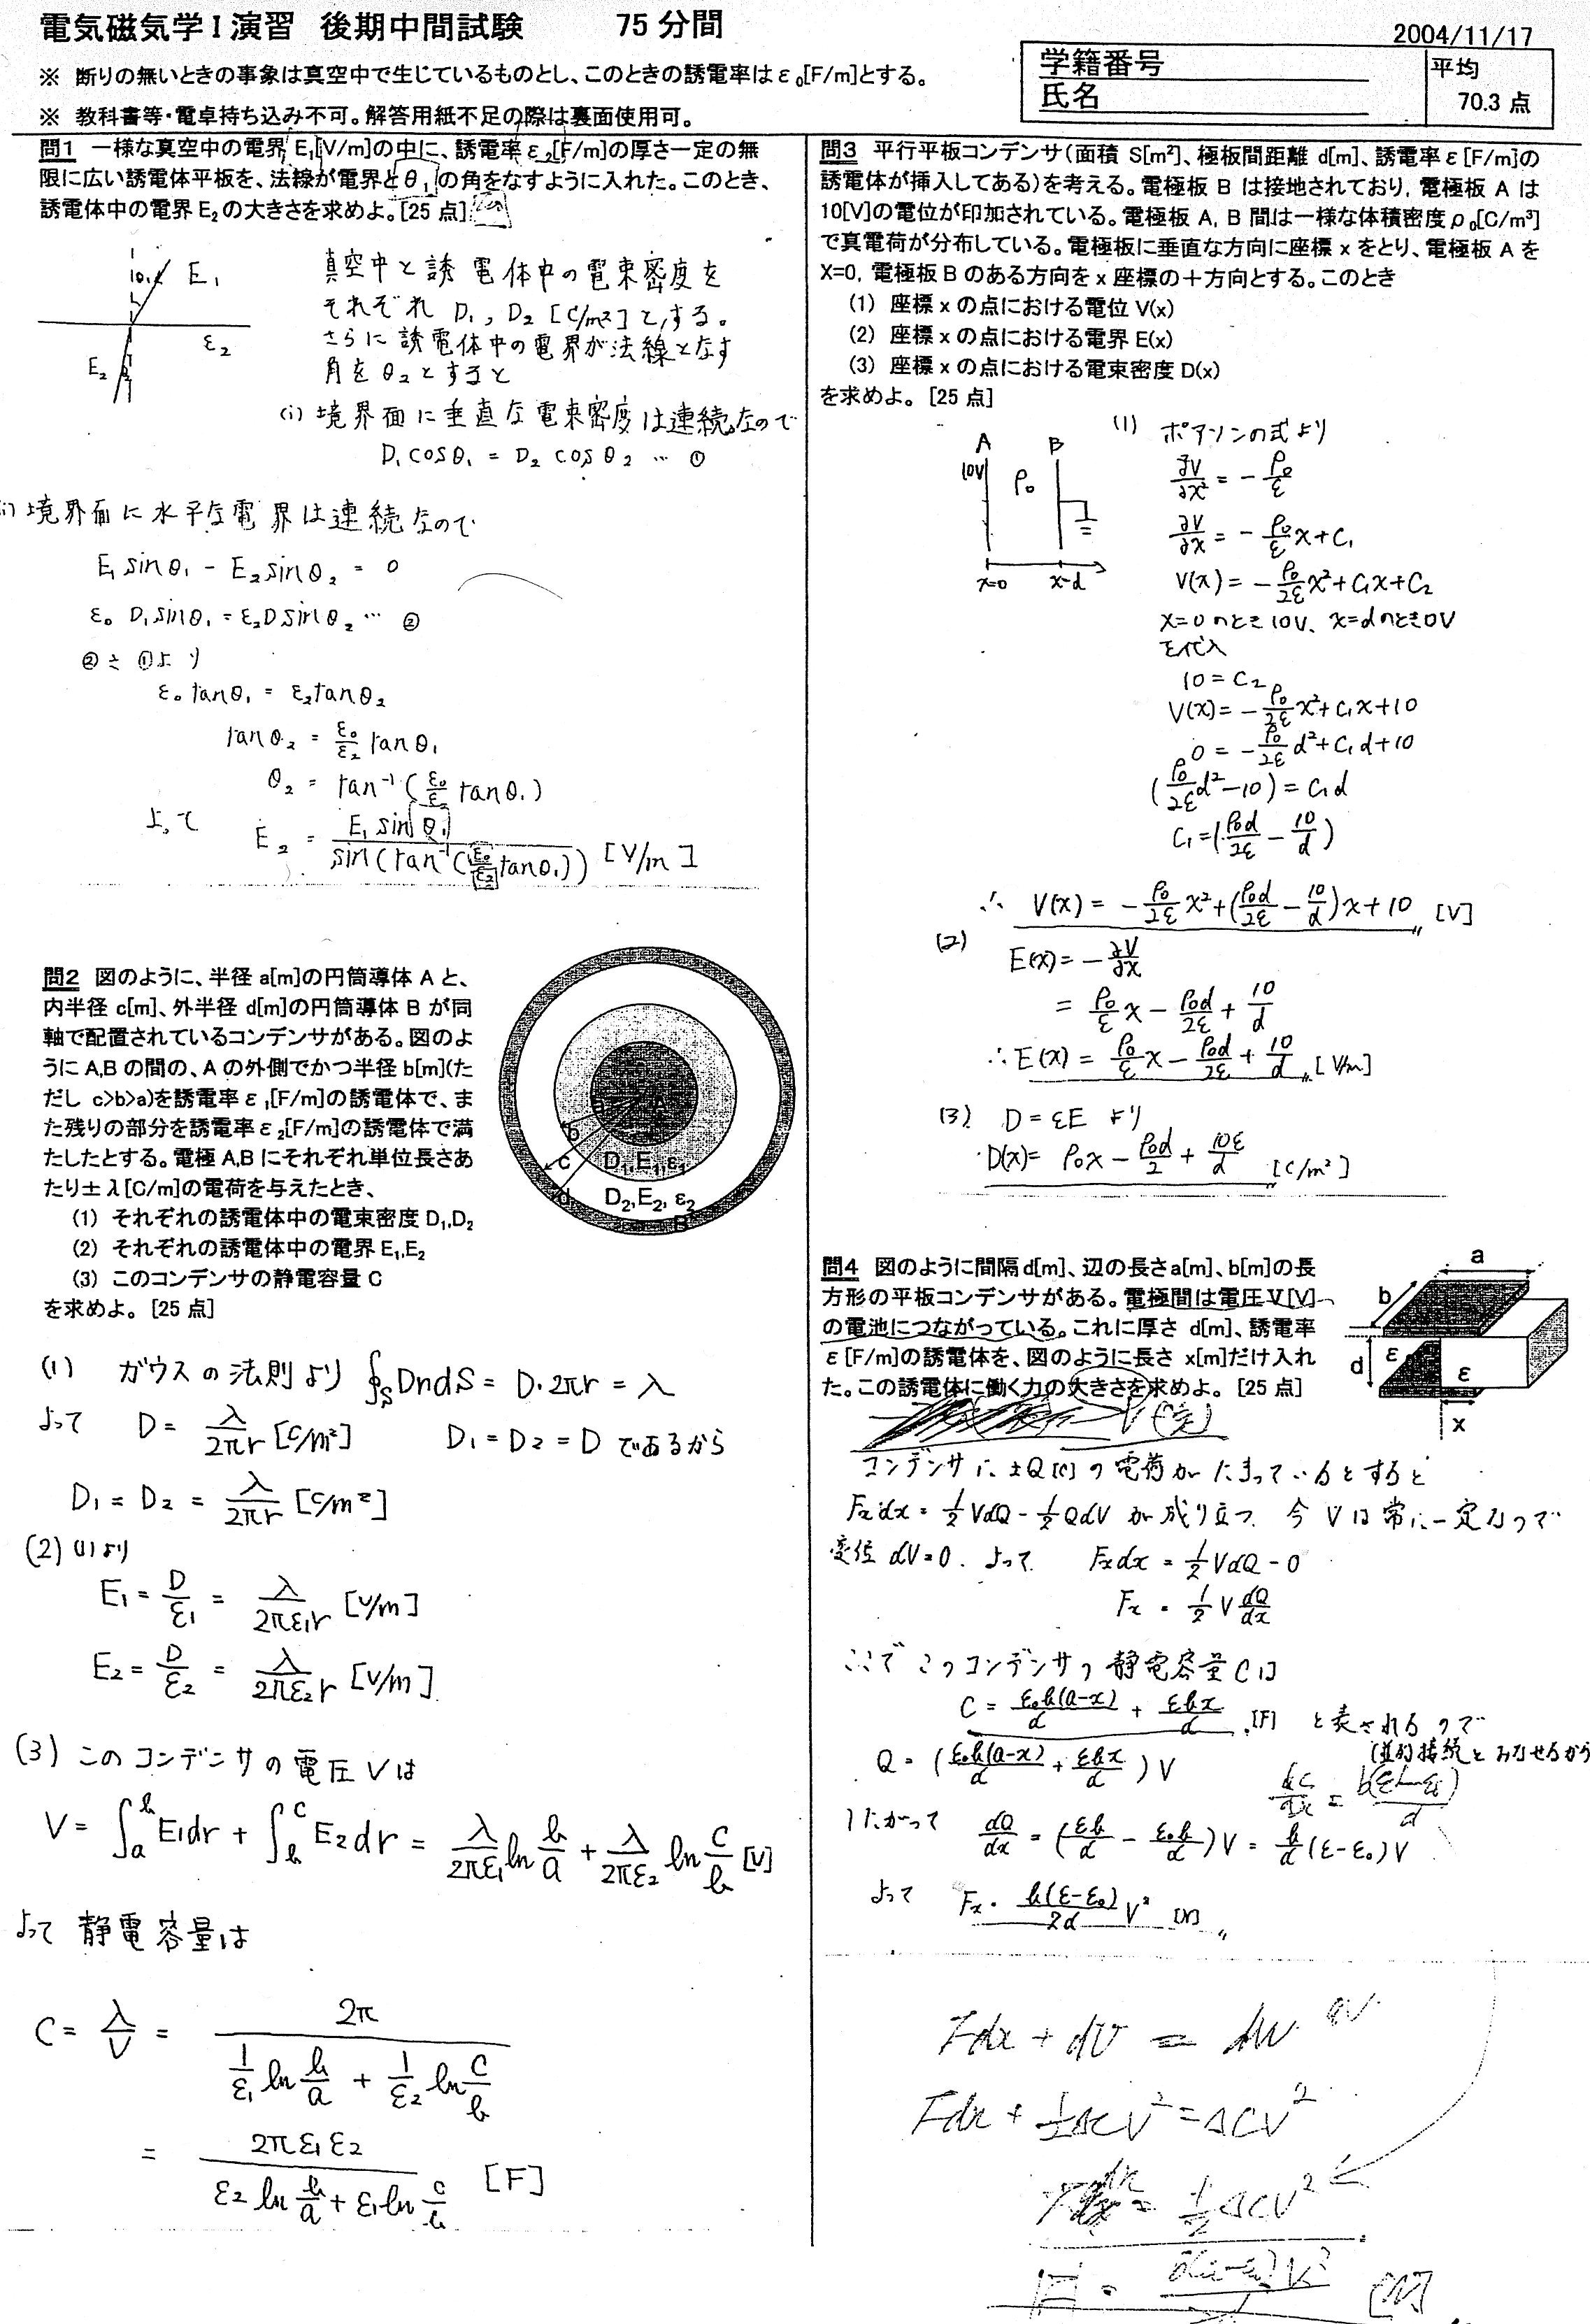 電気磁気学Ⅰ演習 後期中間試験 75分間
2004/11/17
※ 断りの無いときの事象は真空中で生じているものとし、このときの誘電率はε₀[F/m]とする。
※ 教科書等・電卓持ち込み不可。解答用紙不足の際は裏面使用可。
学籍番号
氏名
平均
70.3 点
問1 一様な真空中の電界 E₁[V/m]の中に、誘電率ε₂[F/m]の厚さ一定の無
限に広い誘電体平板を、法線が電界とθ₁の角をなすように入れた。このとき、
誘電体中の電界E₂の大きさを求めよ。[25点]
θ₁ E₁
ε₂
E₂
真空中と誘電体中の電束密度を
それぞれ D₁, D₂ [C/m²]とする。
さらに誘電体中の電界が法線となす
角をθ₂とすると
(i) 境界面に垂直な電束密度は連続なので
D₁cosθ₁ = D₂cosθ₂ … ①
境界面に水平な電界は連続なので
E₁sinθ₁ - E₂sinθ₂ = 0
ε₀ D₁sinθ₁ = ε₂Dsinθ₂ … ②
②と①より
ε₀tanθ₁ = ε₂tanθ₂
tanθ₂ = ε₀/ε₂ tanθ₁
θ₂ = tan⁻¹(ε₀/ε₂ tanθ₁)
よって E₂ = E₁sinθ₁ / sin(tan⁻¹(ε₀/ε₂ tanθ₁)) [V/m]
問2 図のように、半径a[m]の円筒導体Aと、
内半径 c[m]、外半径 d[m]の円筒導体 B が同
軸で配置されているコンデンサがある。図のよ
うにA,Bの間の、Aの外側でかつ半径b[m](た
だし c>b>a)を誘電率ε₁[F/m]の誘電体で、ま
た残りの部分を誘電率ε₂[F/m]の誘電体で満
たしたとする。電極A,Bにそれぞれ単位長さあ
たり±λ[C/m]の電荷を与えたとき、
(1) それぞれの誘電体中の電束密度D₁,D₂
(2) それぞれの誘電体中の電界E₁,E₂
(3) このコンデンサの静電容量C
を求めよ。[25点]
a A
b
c D₁,E₁,ε₁
d D₂,E₂, ε₂
B
(1) ガウスの法則より ∮ₛDndS = D・2πr = λ
よって D = λ/2πr [C/m²] D₁ = D₂ = D であるから
D₁ = D₂ = λ/2πr [C/m²]
(2) (1)より
E₁ = D/ε₁ = λ/2πε₁r [V/m]
E₂ = D/ε₂ = λ/2πε₂r [V/m]
(3) このコンデンサの電圧Vは
V = ∫ₐᵇE₁dr + ∫_b^c E₂dr = λ/2πε₁ ln b/a + λ/2πε₂ ln c/b [V]
よって静電容量は
C = λ/V = 2π / (1/ε₁ ln b/a + 1/ε₂ ln c/b)
= 2πε₁ε₂ / (ε₂ ln b/a + ε₁ ln c/b) [F]
問3 平行平板コンデンサ(面積 S[m²]、極板間距離 d[m]、誘電率ε[F/m]の
誘電体が挿入してある)を考える。電極板 B は接地されており, 電極板 A は
10[V]の電位が印加されている。電極板A, B間は一様な体積密度ρ₀[C/m³]
で真電荷が分布している。電極板に垂直な方向に座標 x をとり、電極板 A を
X=0, 電極板Bのある方向をx座標の+方向とする。このとき
(1) 座標xの点における電位V(x)
(2) 座標xの点における電界E(x)
(3) 座標xの点における電束密度D(x)
を求めよ。[25点]
A B
10V ρ₀
x=0 x=d
(1) ポアソンの式より
∂²V/∂x² = -ρ₀/ε
∂V/∂x = -ρ₀/ε x+C₁
V(x) = -ρ₀/2ε x²+C₁x+C₂
x=0のとき10V、x=dのとき0V
を代入
10=C₂
V(x) = -ρ₀/2ε x²+C₁x+10
0 = -ρ₀/2ε d²+C₁d+10
(ρ₀/2ε d²-10) = C₁d
C₁=(ρ₀d/2ε - 10/d)
∴ V(x) = -ρ₀/2ε x²+(ρ₀d/2ε - 10/d)x+10 [V]
(2) E(x) = -∂V/∂x
= ρ₀/ε x - ρ₀d/2ε + 10/d
∴E(x) = ρ₀/ε x - ρ₀d/2ε + 10/d [V/m]
(3) D=εE より
D(x)= ρ₀x - ρ₀d/2 + 10ε/d [C/m²]
問4 図のように間隔d[m]、辺の長さa[m]、b[m]の長
方形の平板コンデンサがある。電極間は電圧V[V]
の電池につながっている。これに厚さ d[m]、誘電率
ε[F/m]の誘電体を、図のように長さ x[m]だけ入れ
た。この誘電体に働く力の大きさを求めよ。[25点]
a
b
d ε ε
x
コンデンサに±Q[C]の電荷がたまっているとすると
Fxdx = 1/2 VdQ - 1/2 QdV が成り立つ 今Vは常に一定なので
変位 dV=0. よって Fxdx = 1/2 VdQ - 0
Fx = 1/2 V dQ/dx
ここでこのコンデンサの静電容量Cは
C = ε₀b(a-x)/d + εbx/d [F] と表されるので
(並列接続とみなせるから
Q = (ε₀b(a-x)/d + εbx/d)V
dC/dx = b(ε-ε₀)/d
したがって dQ/dx = (εb/d - ε₀b/d)V = b/d(ε-ε₀)V
よって Fx = b(ε-ε₀)/2d V² [N]
Fdx + dU = dW
Fdx + 1/2 ΔCV² = ΔCV²
= 1/2 ΔCV²